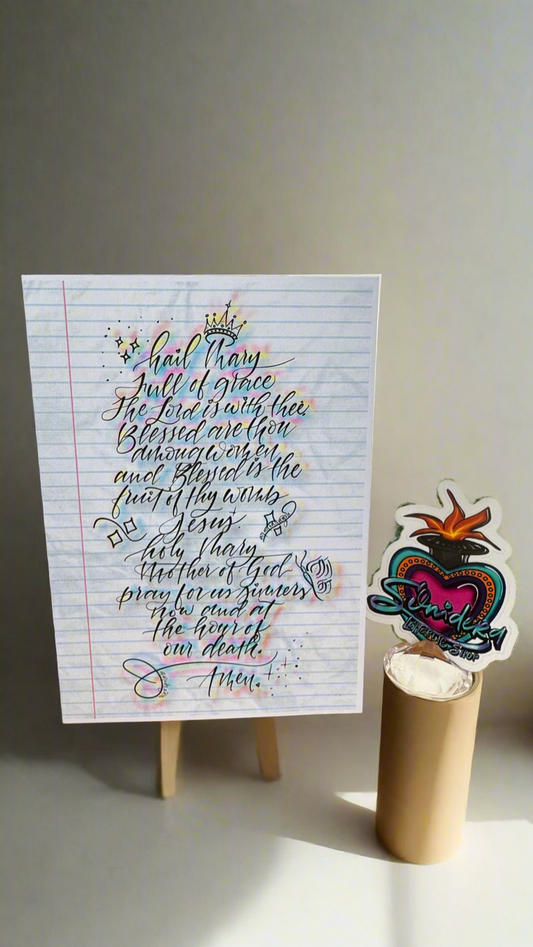 hail Mary
Full of grace
The Lord is with thee
Blessed are thou
among women
and Blessed is the
fruit of thy womb
Jesus.
holy Mary
Mother of God
pray for us sinners
now and at
the hour of
our death.
Amen.